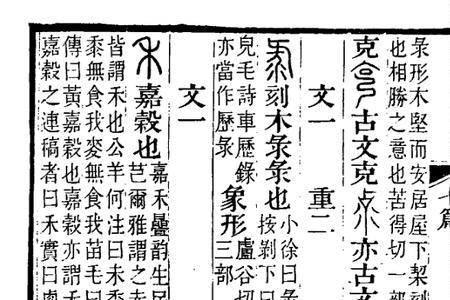 七篇
彔形木堅而安居屋下契刻
也相勝之意也苦得切一部
克古文克亦古文
文一　重二
刻木彔彔也
小徐曰彔
按剥下曰
皃毛詩車歷錄
亦當作歷彔
象形
盧谷切
三部
文一
禾嘉穀也
嘉禾疊韵生民
芑爾雅謂之赤
皆謂禾也公羊何注曰禾
黍無食我麥無食我苗毛曰
傳曰黃嘉穀也嘉穀亦謂禾
嘉穀之連稿者曰禾實曰